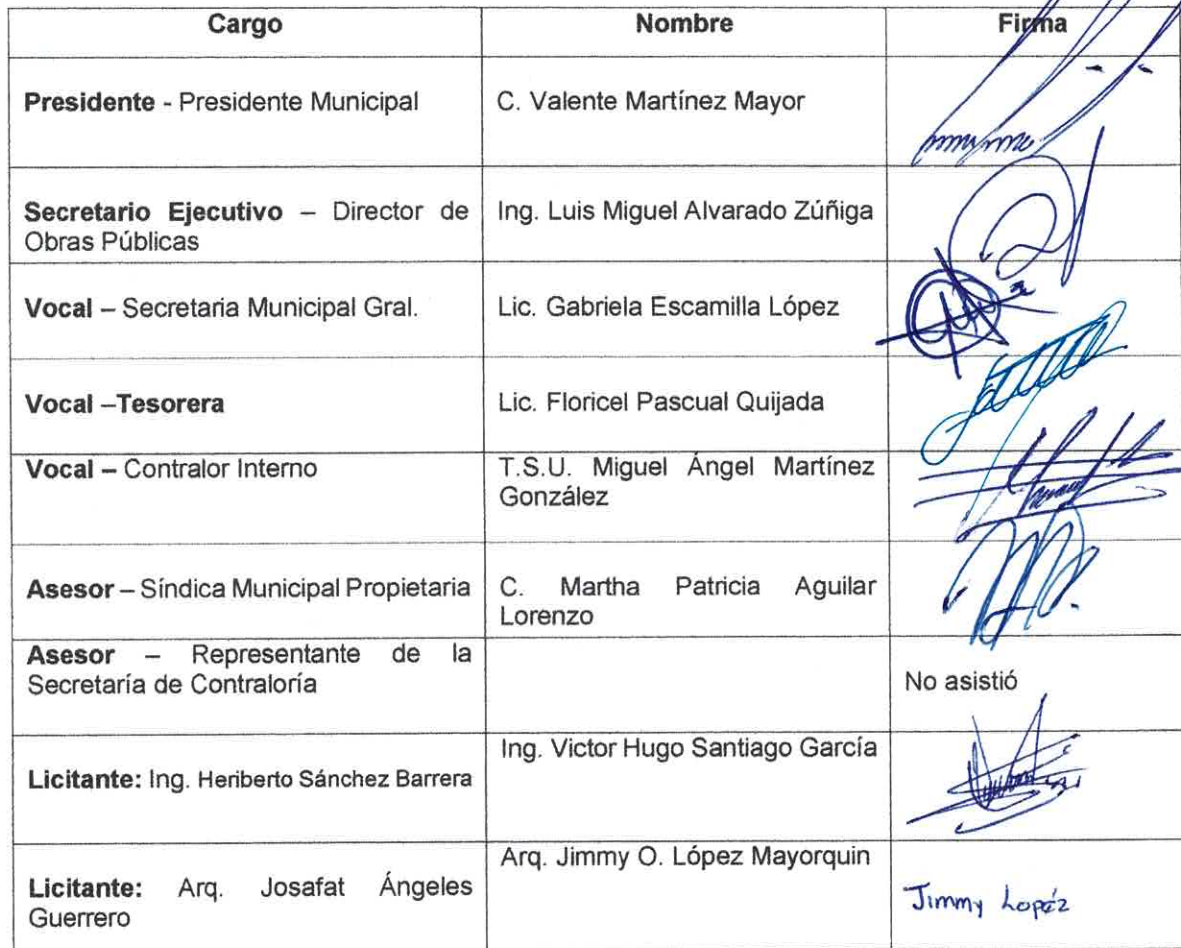 Cargo Nombre Firma
Presidente - Presidente Municipal C. Valente Martínez Mayor
Secretario Ejecutivo – Director de
Obras Públicas
Ing. Luis Miguel Alvarado Zúñiga
Vocal – Secretaria Municipal Gral. Lic. Gabriela Escamilla López
Vocal –Tesorera Lic. Floricel Pascual Quijada
Vocal – Contralor Interno
T.S.U. Miguel Ángel Martínez
González
Asesor – Síndica Municipal Propietaria
C. Martha Patricia Aguilar
Lorenzo
Asesor – Representante de la
Secretaría de Contraloría
No asistió
Licitante: Ing. Heriberto Sánchez Barrera
Ing. Victor Hugo Santiago García
Licitante: Arq. Josafat Ángeles
Guerrero
Arq. Jimmy O. López Mayorquin
Jimmy Lopéz